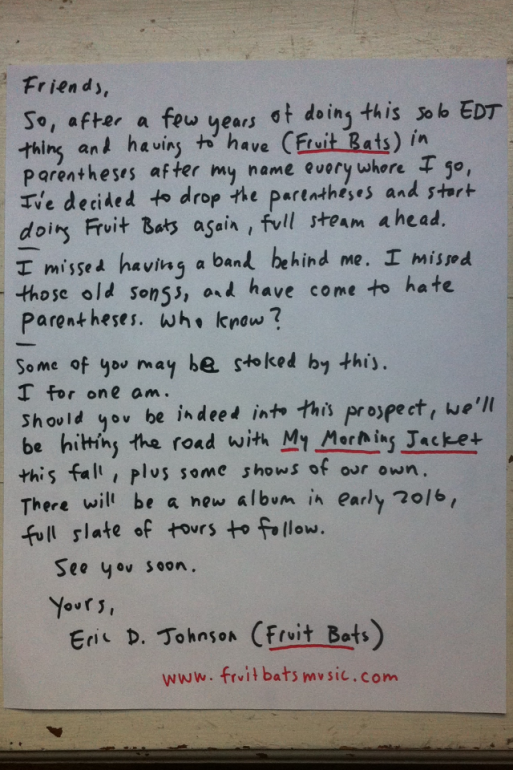 Friends,
So, after a few years of doing this solo EDJ
thing and having to have (Fruit Bats) in
parentheses after my name everywhere I go,
I've decided to drop the parentheses and start
doing Fruit Bats again, full steam ahead.
I missed having a band behind me. I missed
those old songs, and have come to hate
parentheses. Who knew?
Some of you may be stoked by this.
I for one am.
Should you be indeed into this prospect, we'll
be hitting the road with My Morning Jacket
this fall, plus some shows of our own.
There will be a new album in early 2016,
full slate of tours to follow.
See you soon.
Yours,
Eric D. Johnson (Fruit Bats)
www.fruitbatsmusic.com